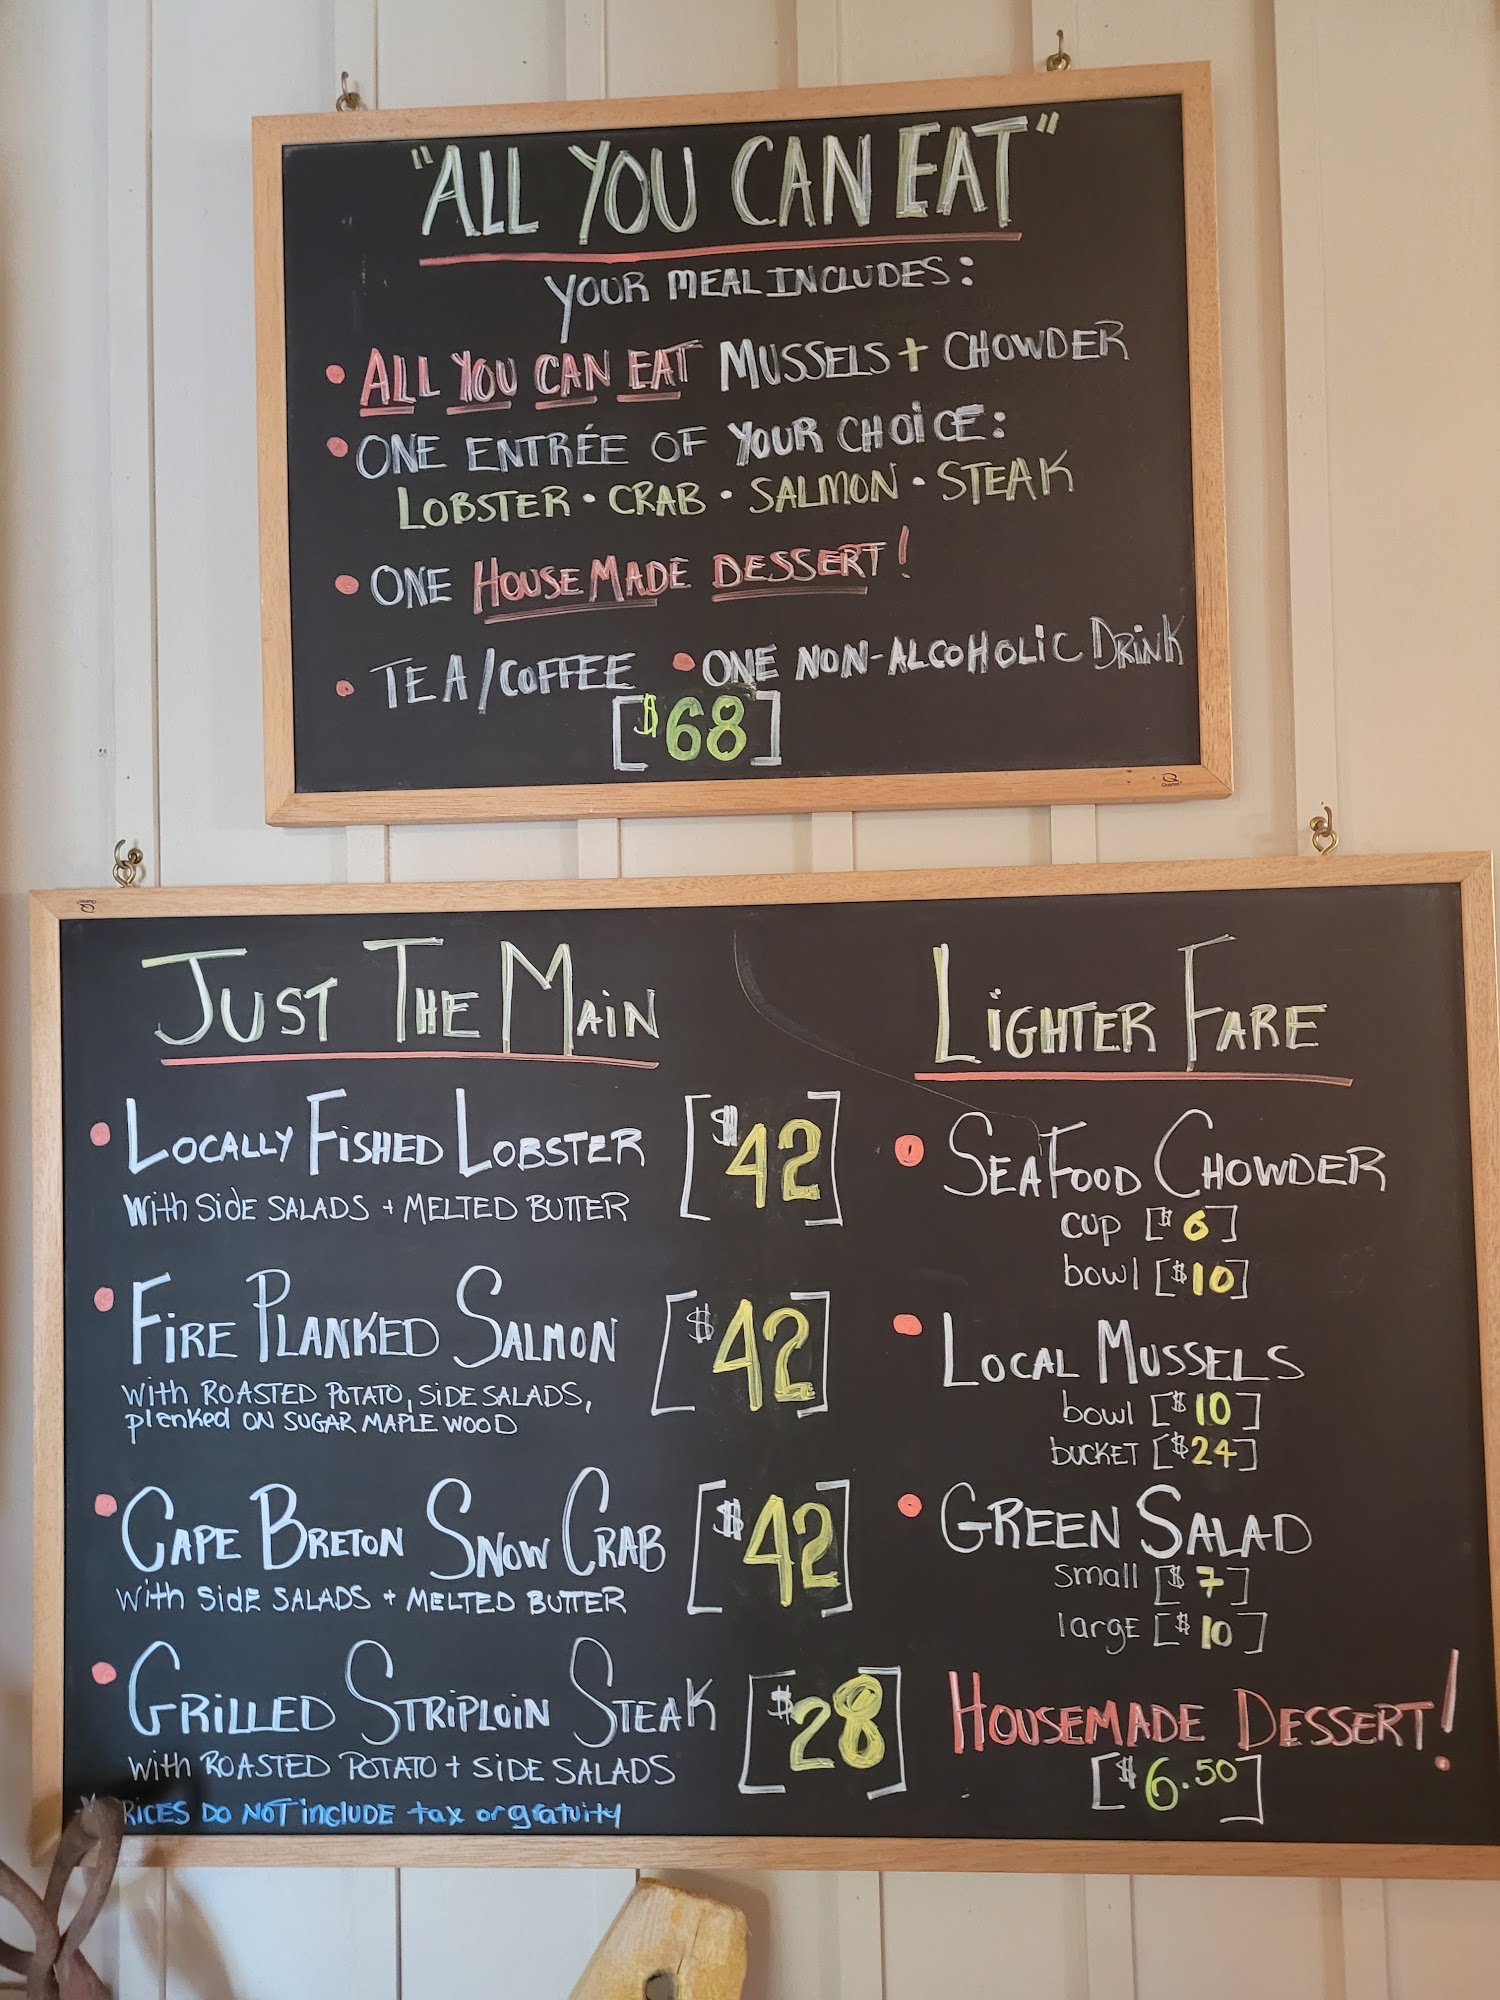 "ALL YOU CAN EAT"
YOUR MEAL INCLUDES:
• ALL YOU CAN EAT MUSSELS + CHOWDER
• ONE ENTRÉE OF YOUR CHOICE:
LOBSTER • CRAB • SALMON • STEAK
• ONE HOUSEMADE DESSERT!
• TEA/COFFEE • ONE NON-ALCOHOLIC DRINK
[$68]
Quartet
JUST THE MAIN
• LOCALLY FISHED LOBSTER [$42]
With Side SALADS + MELTED BUTTER
• FIRE PLANKED SALMON [$42]
with ROASTED POTATO, SIDE SALADS,
plenked ON SUGAR MAPLE WOOD
• CAPE BRETON SNOW CRAB [$42]
with Side SALADS + MELTED BUTTER
• GRILLED STRIPLOIN STEAK [$28]
with ROASTED POTATO + SIDE SALADS
RICES DO NOT incLUDE tax or gratuity
LIGHTER FARE
• SEAFOOD CHOWDER
cup [$6]
bowl [$10]
• LOCAL MUSSELS
bowl [$10]
bucket [$24]
• GREEN SALAD
small [$7]
large [$10]
HOUSEMADE DESSERT!
[$6.50]